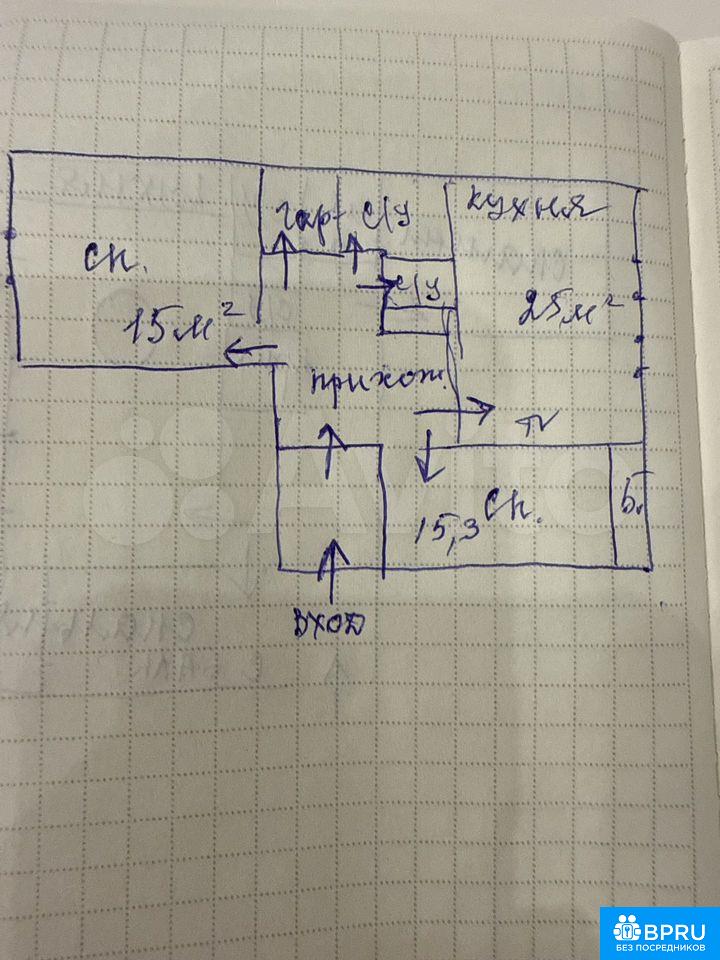 кухня
гар
с/у
сп.
с/у
15 м²
25 м²
прихож.
TV
15,3 сп.
б.
вход
Avito
BPRU
БЕЗ ПОСРЕДНИКОВ